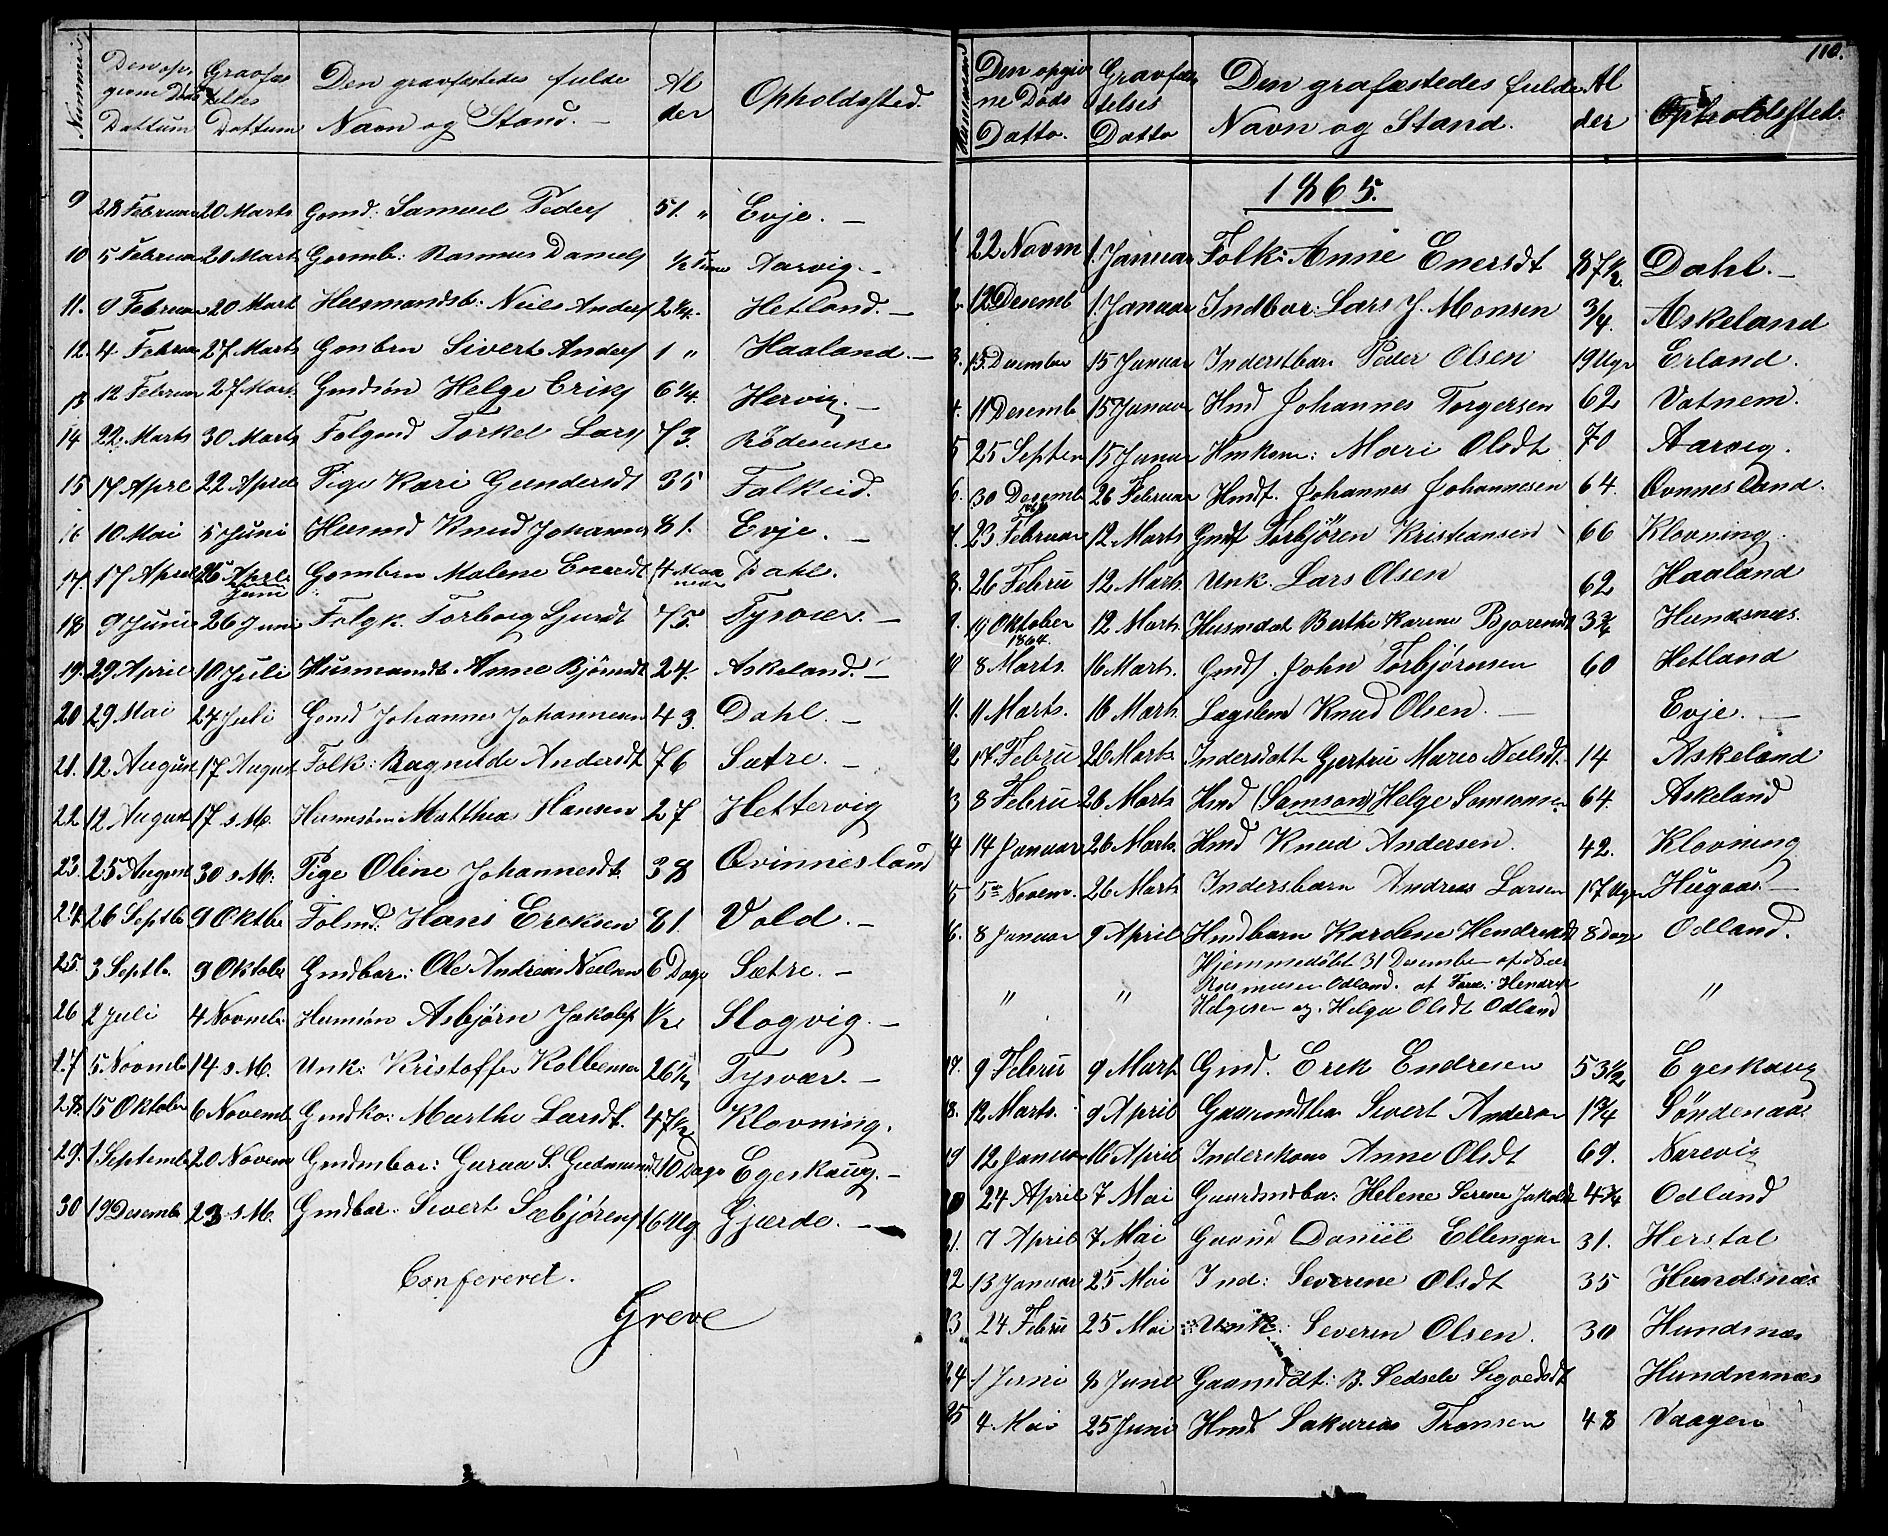 Nummer
Den opgivne Døds Dattum
Gravfæstelses Dattum
Den gravfæstedes fulde Navn og Stand. -
Alder
Opholdssted.
9 28 Februar 20 Marts Gmd: Samuel Peders 51. " Evje. -
10 5 Februar 20 Marts Gormb: Rasmus Daniels 1/2 Time Aarvig. -
11. 9 Februar 20 Mart Huusmandsb: Neils Anders 2 1/4. Hetland. -
12. 4 Februar 27 Marts Gmbrn Sivert Anders 1 " Haaland. -
13 12 Februar 27 Mart. Gmdsøn Helge Eriks 6 1/4. Hervig. -
14 22 Marts 30 Marts Folgmd Torkel Lars 73.
15 17 Apre 22 Aprel Pige Kari Gundersdt 35 Falkeid.
16 10 Mai 5 Juni Husmd Knud Johannes 81. Evje. -
17. 17 April 26 Juni Gombrn Malene Enersdt 4 Maaneder Dahl.
18 9 Juni 26 Juni Folgk. Torborg Sjursdt 75. Tysvær. -
19. 29 April 10 Juli Husmandt Anne Bjørnsdt 24. Askeland. -
20 29 Mai 24 Juli Gmd Johannes Johannesen 43 Dahl. -
21. 12 August 17 August Folk: Ragnilde Andersdt 76 Sætre. -
22. 12 August 17 s.M. Husmsøn Matthias Hansen 27 Hettervig
23. 25 August 30 s.M. Pige Oline Johannesdt 38 Qvinnesland
24. 26 Septb 9 Oktbr Folmd: Hans Ereksen 81 Vold. -
25. 3 Septb. 9 Oktober Gmdbar: Ole Andreas Neilsen 6 Dage Sætre. -
26 2 Juli 4 Novmbr Husmsøn Asbjørn Jakobs 1/2 Slogvig. -
27 5 Novmb 14 s.M. Unk: Kristoffer Kolbensen 26 1/2 Tysvær. -
28. 15 Oktober 6 Novemb Gmdko: Marthe Larsdt. 47 1/2 Klovning.
29. 1 Septemb 20 Novem Gmdmbar: Guroa S. Gudmundsdt 10 Dage Egeskaug. -
30 19 Desemb 23 s.M. Gmdbar. Sivert Sæbjørens 16 Ug Gjærde. -
Confereret.
Greve
110.
Den opgivne Døds Datto.
Gravfæstelses Datto
Den grafæstedes fulde Navn og Stand.
Alder
Opholdssted.
1865.
1. 22 Novm 1. Januar Folk: Anne Enersdt 87 1/2. Dahl. -
2. 12 Desemb 1. Januar Indbar: Lars J. Monsen 3/4. Askeland
3. 15 Desember 15 Januar Inderstbar. Peder Olsen 19 Uger Erland.
4. 11 Desemb 15 Januar Hmd Johannes Torgersen 62 Vatnem.
5 25 Septem 15 Januar Hmkone: Mari Olsdt 70 Aarvig.
6. 30 Desemb 1864 26 Februar Hmdf. Johannes Johannesen 64. Qvnnesland.
7. 23 Februar 12 Marts Gmdf Torbjören Kristiansen 66 Klovning.
8. 26 Febru 12 Marts Unk. Lars Olsen 62 Haaland
9. 19 Oktober 1864. 12 Marts Husmdat Berthe Karine Bjorensdt 3 3/4 Hundsnæs.
8 Marts. 16 Marts. Gmdf. John Torbjørnsen 60 Hetland
11. 11 Marts. 16 Marts Lægslem Knud Olsen. - Evje. -
12 17 Febru 26 Marts Indersdatt Gjertru Maria Neilsdt 14 Askeland
13 8 Febru 26 Marts Hmd (Samson) Helge Samsonsen 64. Askeland
14 14 Januar 26 Marts. Hmd Knud Andersen. 42. Klovning
15 5te Novem. 26 Marts Indersbarn Andreas Larsen 17 Uger Hugaas. -
16. 8 Januar 9 April Hmdbarn Karoline Hendreksdt 8 Dage Odland.
Hjemmedøbt 31 Desember af
" " Rasmusen Odland. af Foræ: Hendrik "
Helgesen og. Helga Olsdt Odland
17. 9 Febru 9 Mart Gmd. Erek Endresen 53 1/2 Egeskaug
18. 12 Marts. 9 April Gaarmdtba Sivert Anderse 1 3/4 Søndenaa
19 12 Januar 16 April Inderskone Anne Olsdt 69. Narevig
20 24 April 7 Mai Gaardmdba: Helene Serine Jakobsdt 4 3/4 Odland
21. 7 April 7 Mai Gaarmd Daniil Ellingsen 31. Herstøl
22 13 Januar 25 Mai Ind: Severine Olsdt 35 Hundsnæs
23. 24 Febru 25 Mai Unk: Severin Olsen. 30 Hundsnæs
24. 1 Juni 8 Juni Gaarmddt: B. Sedsele Sigvedsdt Hundsnæs
25 4. Mai 25 Juni Hmd Sakarias Thomsen 48 Vaagen